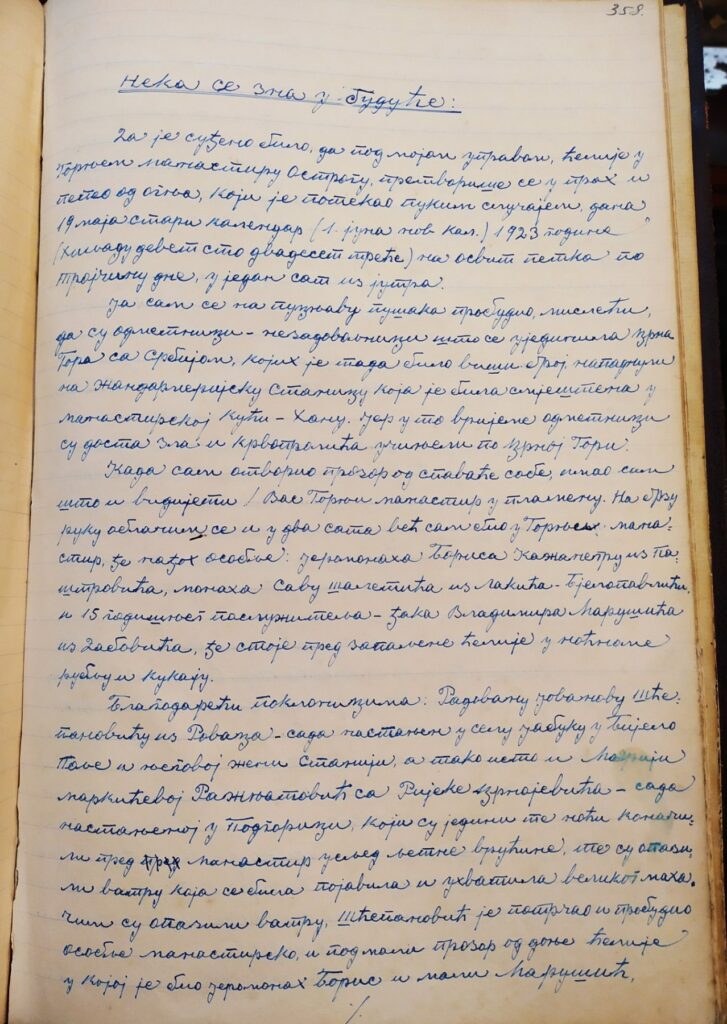 358.
Нека се зна у будуће:
Да је суђено било, да под мојом управом, ћелије у
Горњем манастиру Острогу, претворише се у прах и
пепео од огња, који је потекао пуким случајем, дана
19 маја стари календар (-1. јуна нов. кал.) 1923 године
(хиљаду девет сто двадесет треће) на освит петка по
Тројичину дне, у један сат из јутра.
Ја сам се на пузњаву пушака пробудио, мислећи,
да су одметници – незадовољници што се ујединила Црна
Гора са Србијом, којих је тада било виши број, нападнули
на жандармеријску станицу која је била смјештена у
манастирској кући – Хану. Јер у то вријеме одметници
су доста зла и крвопролића учињели по Црној Гори.
Када сам отворио прозор од спаваће собе, имао сам
што и видијети! Вас Горњи манастир у пламену. На брзу
руку облачим се и у два сата већ сам био у Горњем мана-
стир, ђе нађох особье: јеромонаха Бориса Кажанегру из Па-
штровића, монаха Саву Шалетића из Лакића – Бјелопавлићи,
и 15 годишњег послужитеља – ђака Владимира Марушића
из Загбовића, ђе стоје пред запаљене ћелије у ноћноме
рубљу и кукају.
Благодарећи поклоницима: Радовану Јованову Шће-
пановићу из Роваца – сада настањен у селу Јабуку у Бијело
Поље и његовој жени Станији, а тако исто и Марији
Маркићевој Ражњатовић са Ријеке Црнојевића – сада
настањеној у Подгорици, који су једини те ноћи коначи-
ли пред манастир усљед љетне врућине, те су опази-
ли ватру која се била појавила и ухватила великог маха.
Чим су опазили ватру, Шћепановић је потрчао и пробудио
особље манастирско, и подмали прозор од доње ћелије
у којој је био јеромонах Борис и мали Марушић,
./.